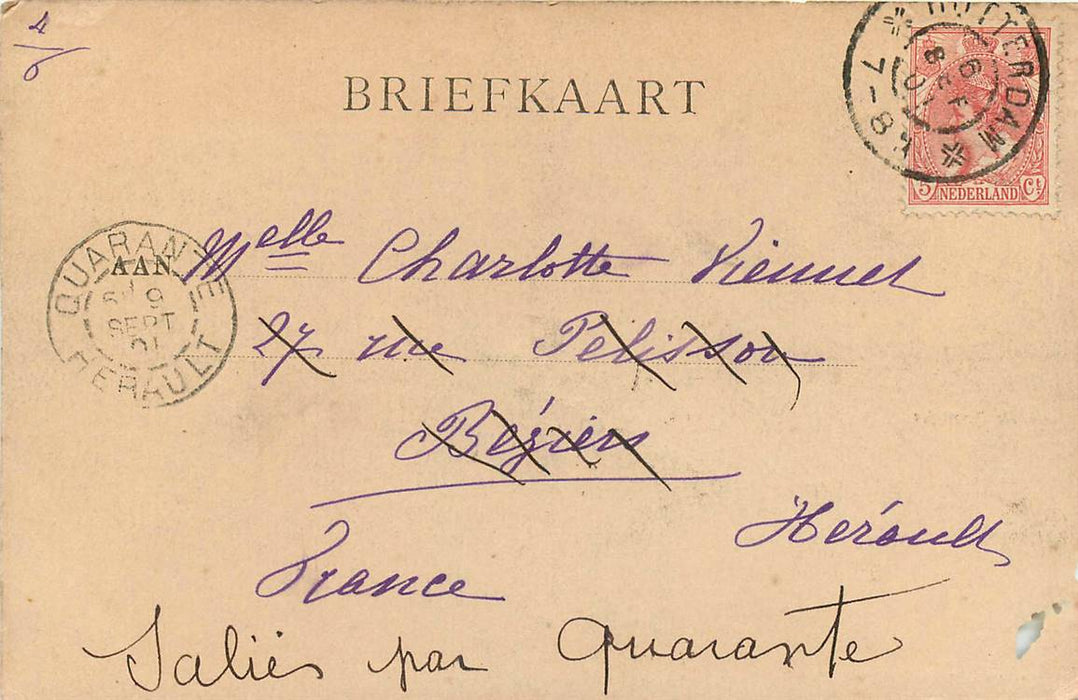 4
6
BRIEFKAART
ROTTERDAM
7-8 N
5 NEDERLAND Ct.
QUARANTE
9
SEPT
01
HERAULT
AAN
Melle Charlotte Viennet
27 rue Pélisson
Béziers
Hérault
France
Saliès par Quarante